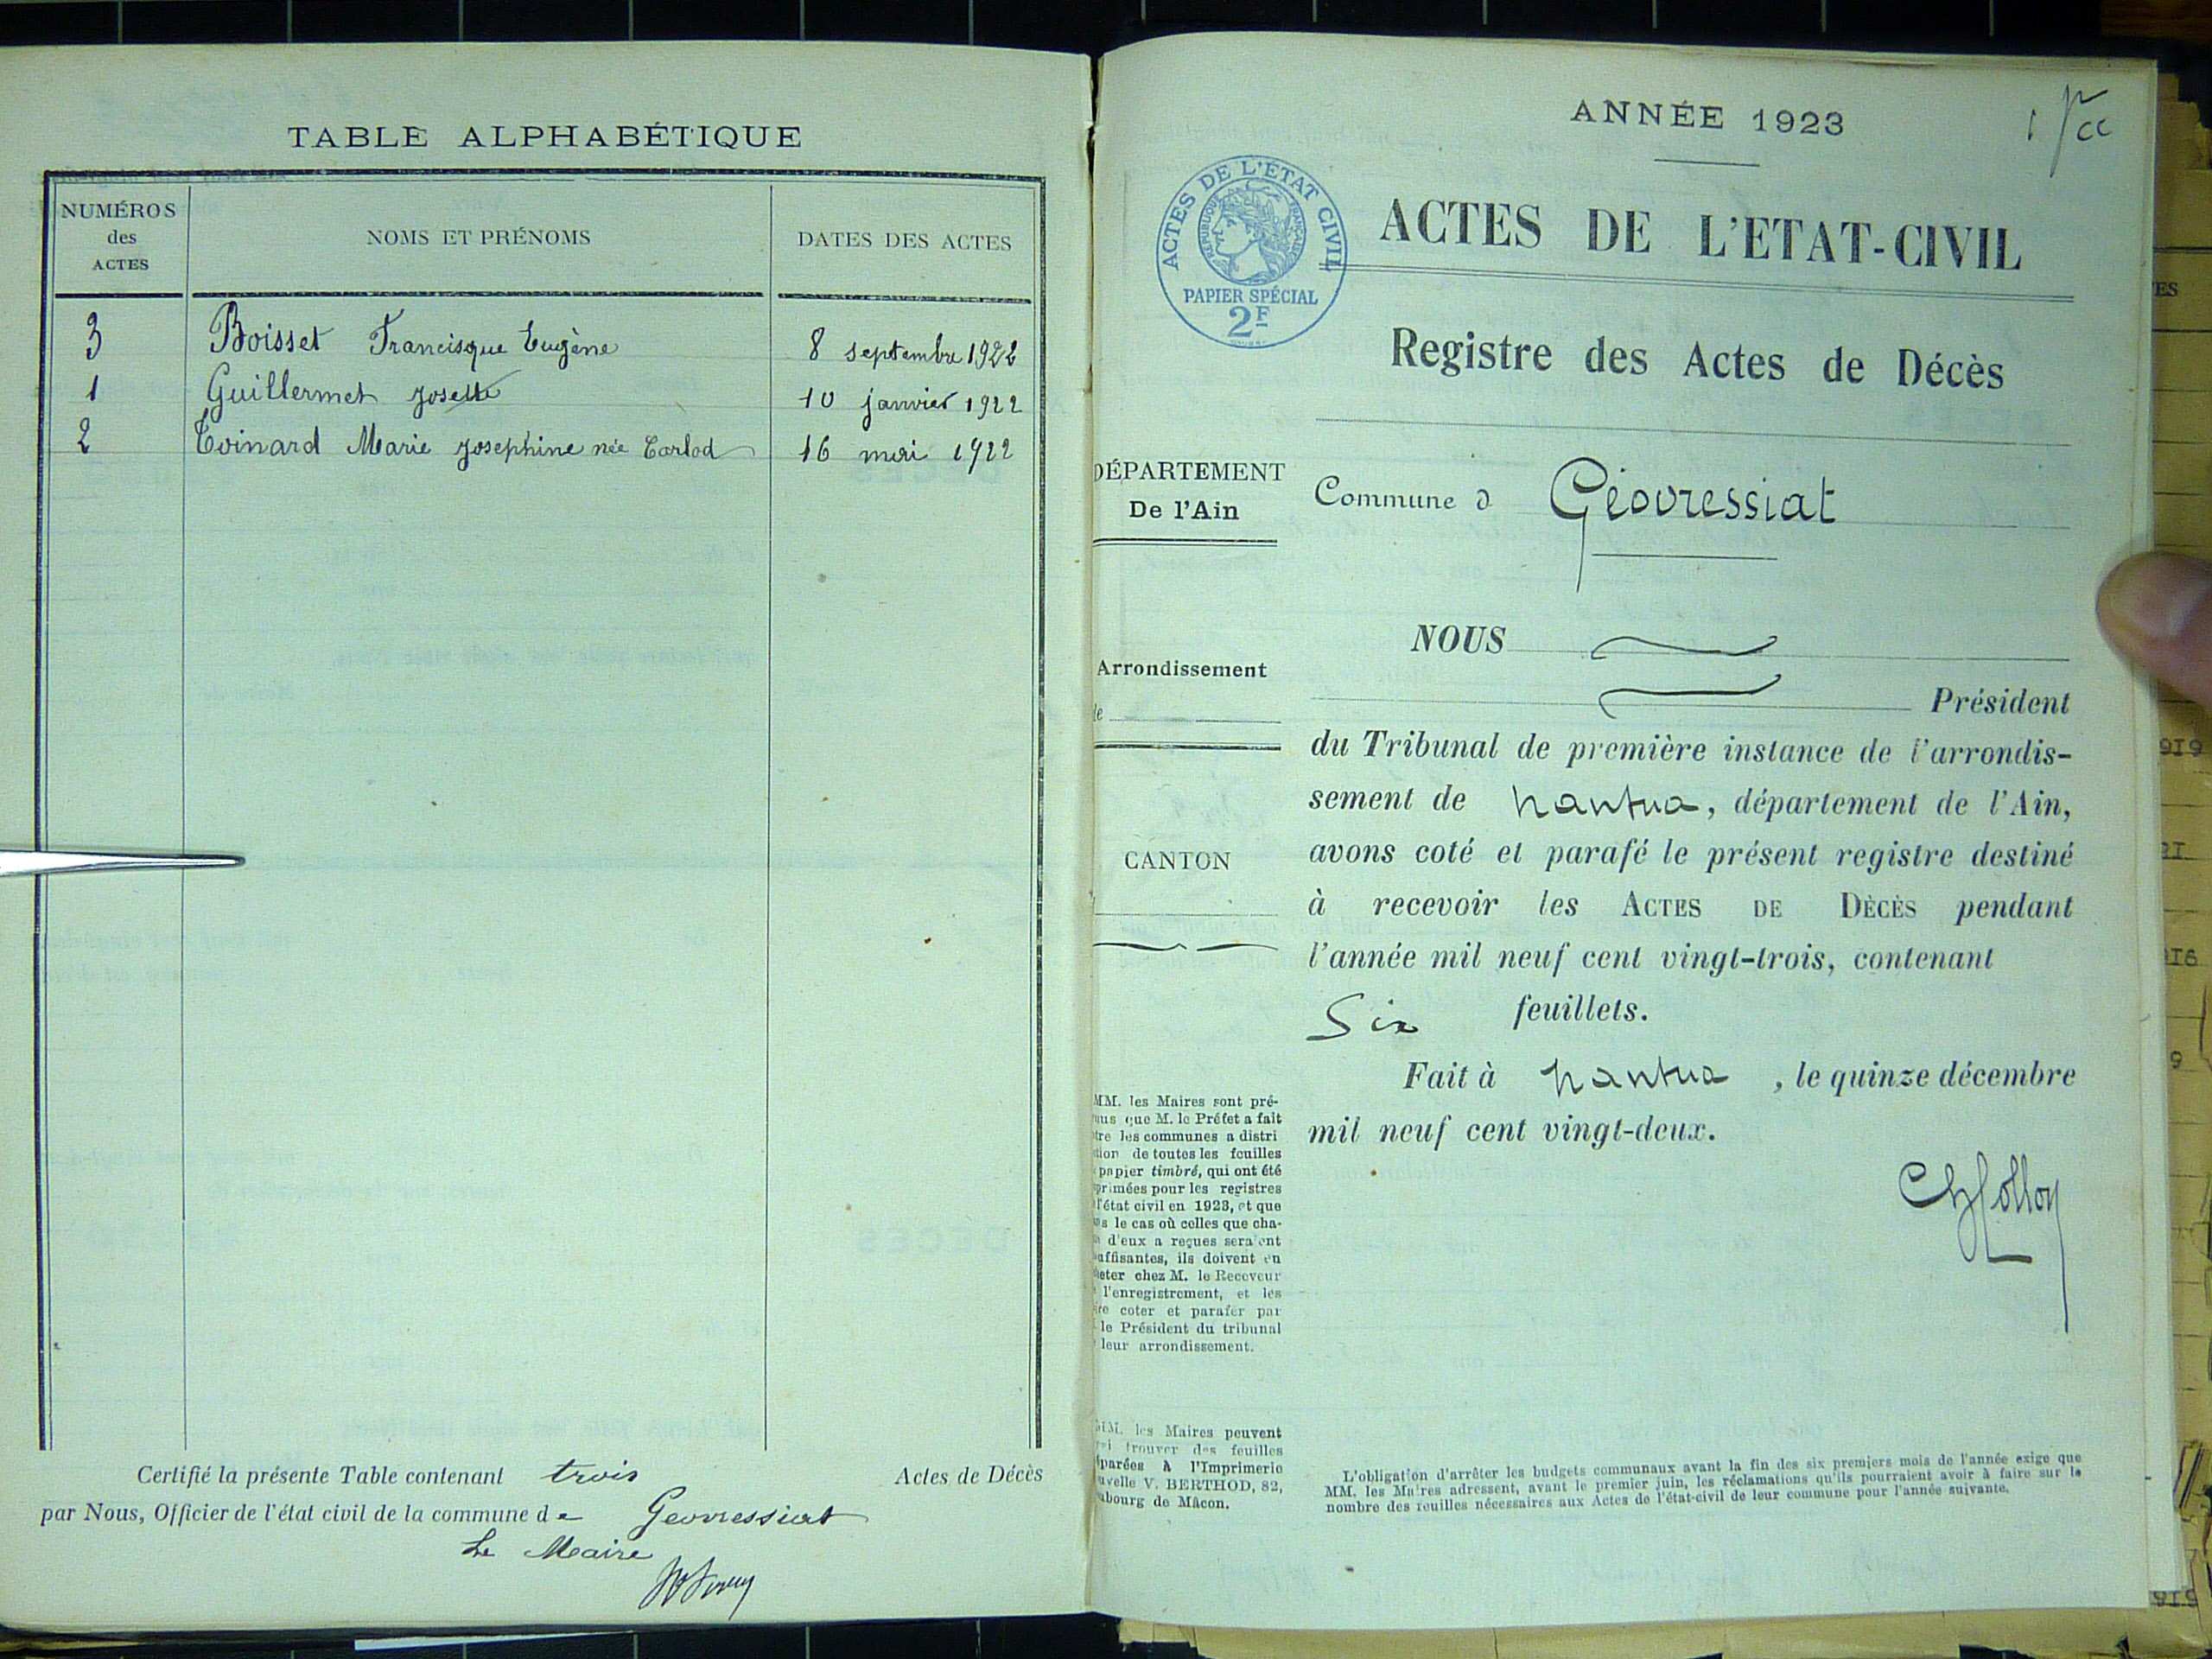 TABLE ALPHABÉTIQUE
NUMÉROS
des
ACTES
NOMS ET PRÉNOMS
DATES DES ACTES
3 Boisset Francisque Eugène 8 septembre 1922
1 Guillermet Josette 10 janvier 1922
2 Toinard Marie Josephine née Carlod 16 mai 1922
Certifié la présente Table contenant trois Actes de Décès
par Nous, Officier de l'état civil de la commune de Geovressiat
Le Maire
ANNÉE 1923
ACTES DE L'ÉTAT CIVIL
RÉPUBLIQUE FRANÇAISE
PAPIER SPÉCIAL
2F
ACTES DE L'ETAT-CIVIL
Registre des Actes de Décès
DÉPARTEMENT
De l'Ain
Commune d Géovressiat
Arrondissement
de
CANTON
NOUS
Président
du Tribunal de première instance de l'arrondis-
sement de Nantua, département de l'Ain,
avons coté et parafé le présent registre destiné
à recevoir les ACTES DE DÉCÈS pendant
l'année mil neuf cent vingt-trois, contenant
Six feuillets.
Fait à Nantua, le quinze décembre
mil neuf cent vingt-deux.
MM. les Maires sont pré-
que M. le Préfet a fait
les communes a distri
de toutes les feuilles
papier timbré, qui ont été
primées pour les registres
l'état civil en 1923, et que
le cas où celles que cha-
d'eux a reçues seraient
uffisantes, ils doivent en
eter chez M. le Receveur
l'enregistrement, et les
coter et parafer par
le Président du tribunal
leur arrondissement.
MM. les Maires peuvent
trouver des feuilles
parées à l'Imprimerie
uvelle V. BERTHOD, 82,
bourg de Mâcon.
L'obligation d'arrêter les budgets communaux avant la fin des six premiers mois de l'année exige que
MM. les Maires adressent, avant le premier juin, les réclamations qu'ils pourraient avoir à faire sur le
nombre des feuilles nécessaires aux Actes de l'état-civil de leur commune pour l'année suivante.